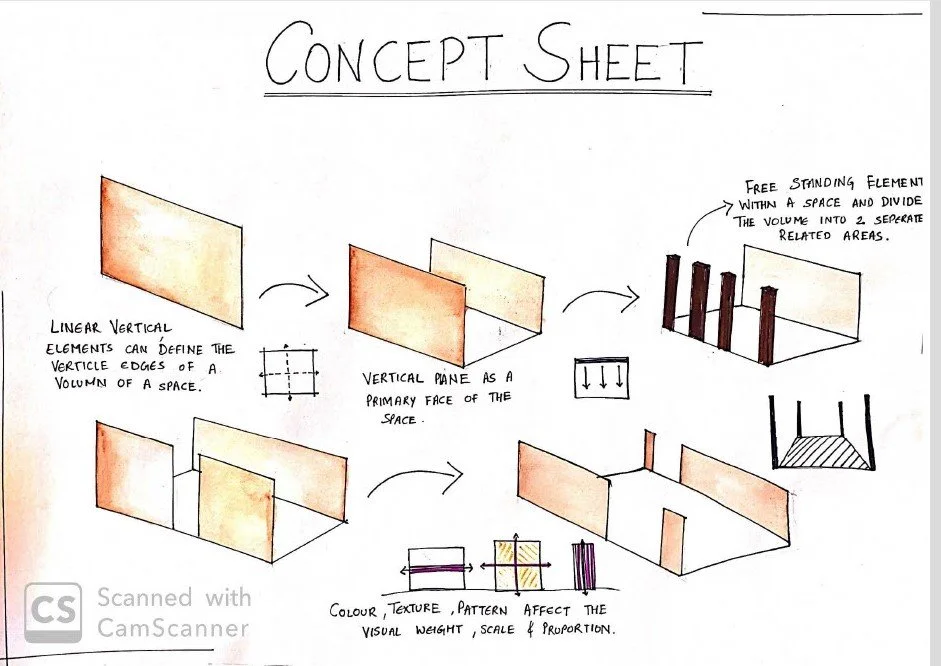 CONCEPT SHEET
FREE STANDING ELEMENT
WITHIN A SPACE AND DIVIDE
THE VOLUME INTO 2 SEPERATE
RELATED AREAS.
LINEAR VERTICAL
ELEMENTS CAN DEFINE THE
VERTICLE EDGES OF A
VOLUMN OF A SPACE.
VERTICAL PLANE AS A
PRIMARY FACE OF THE
SPACE.
COLOUR, TEXTURE, PATTERN AFFECT THE
VISUAL WEIGHT, SCALE & PROPORTION.
CS Scanned with
CamScanner